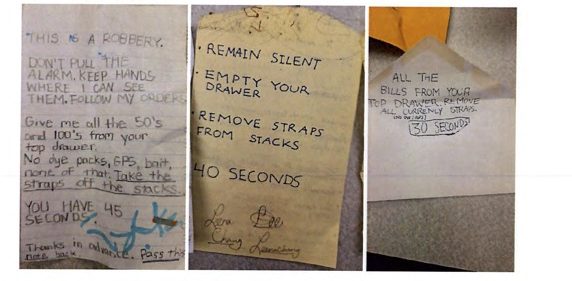 THIS IS A ROBBERY.
DON'T PULL THE
ALARM. KEEP HANDS
WHERE I CAN SEE
THEM. FOLLOW MY ORDERS
Give me all the 50's
and 100's from your
top drawer.
No dye packs, GPS, bait,
none of that. Take the
straps off the stacks.
YOU HAVE 45
SECONDS.
Thanks in advance. Pass this
note back.
• REMAIN SILENT
• EMPTY YOUR
DRAWER
• REMOVE STRAPS
FROM STACKS
40 SECONDS
ALL THE
BILLS FROM YOUR
TOP DRAWER. REMOVE
ALL CURRENCY STRAPS.
30 SECONDS